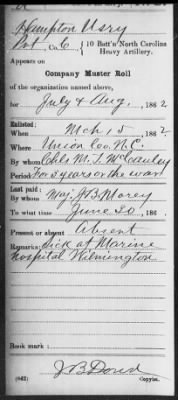 Hampton Usry
Pvt., Co. C { 10 Batt'n North Carolina Heavy Artillery.
Appears on
Company Muster Roll
of the organization named above,
for July & Aug, 1862
Enlisted:
When Mch 15, 1862
Where Union Co. N.C.
By whom Chls M. T. McCauley
Period For 3 years or the war
Last paid:
By whom Maj. J B Morey
To what time June 30, 186 .
Present or absent Absent
Remarks: Sick at Marine
Hospital Wilmington
Book mark:
J B Dowd
(642) Copyist.